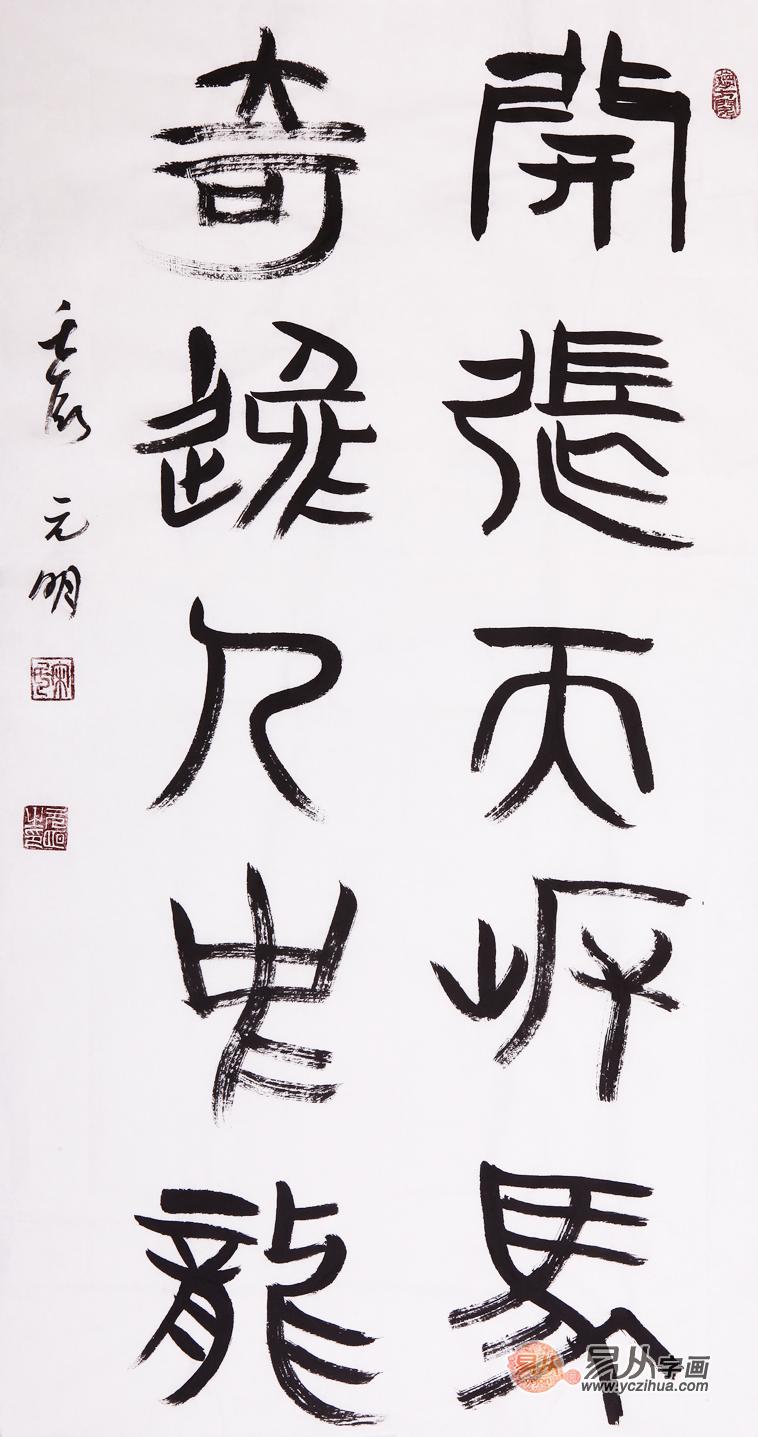 開張天岸馬
奇逸人中龍
壬辰 元明
易从字画
www.yczihua.com